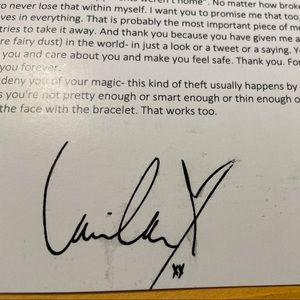 weren't home". No matter how brok
o never lose that within myself. I want you to promise me that too,
ves in everything. That is probably the most important piece of m
tries to take it away. And thank you because you have given me a
re fairy dust) in the world- in just a look or a tweet or a saying. Y
you and care about you and make you feel safe. Thank you. Fo
you forever.
deny you of your magic- this kind of theft usually happens by
s you're not pretty enough or smart enough or thin enough o
the face with the bracelet. That works too.
xx